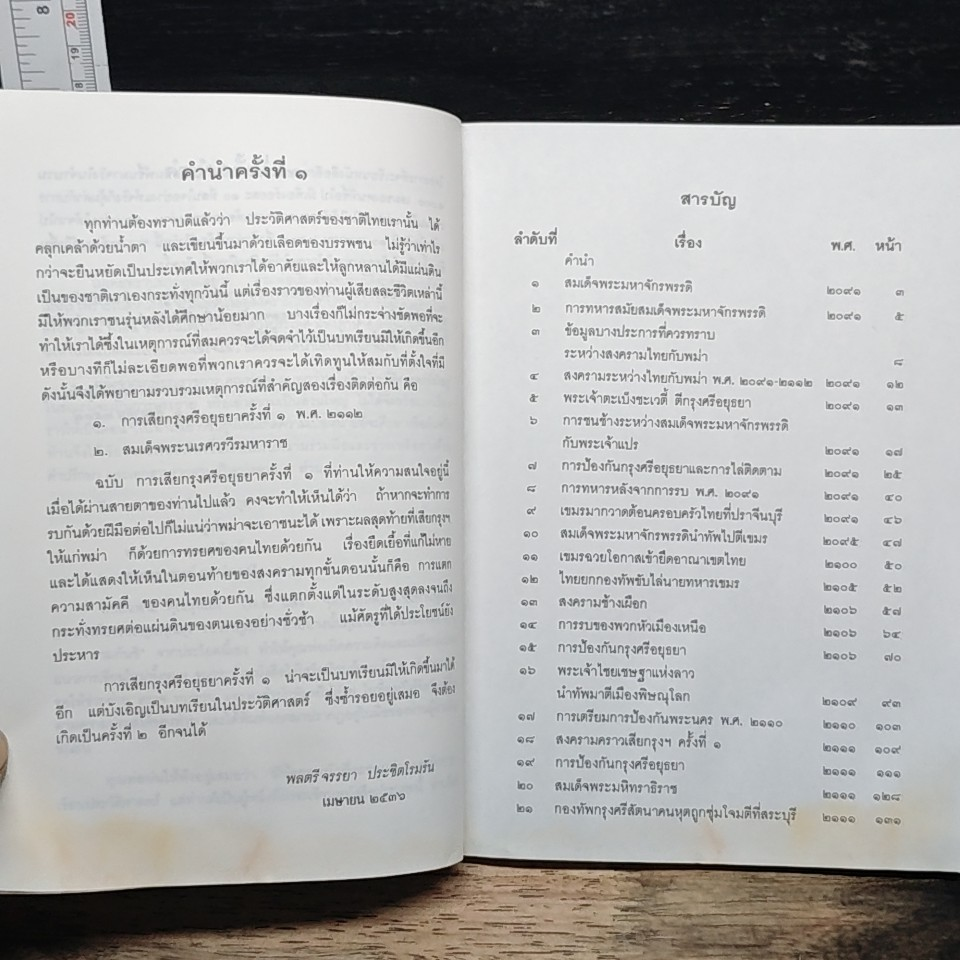 8
20
19
18
คำนำครั้งที่ ๑
ทุกท่านต้องทราบดีแล้วว่า ประวัติศาสตร์ของชาติไทยเรานั้น ได้
คลุกเคล้าด้วยน้ำตา และเขียนขึ้นมาด้วยเลือดของบรรพชน ไม่รู้ว่าเท่าไร
กว่าจะยืนหยัดเป็นประเทศให้พวกเราได้อาศัยและให้ลูกหลานได้มีแผ่นดิน
เป็นของชาติเราเองกระทั่งทุกวันนี้ แต่เรื่องราวของท่านผู้เสียสละชีวิตเหล่านี้
มีให้พวกเราชนรุ่นหลังได้ศึกษาน้อยมาก บางเรื่องก็ไม่กระจ่างชัดพอที่จะ
ทำให้เราได้ซึ้งในเหตุการณ์ที่สมควรจะได้จดจำไว้เป็นบทเรียนมิให้เกิดขึ้นอีก
หรือบางทีก็ไม่ละเอียดพอที่พวกเราควรจะได้เทิดทูนให้สมกับที่ตั้งใจที่มี
ดังนั้นจึงได้พยายามรวบรวมเหตุการณ์ที่สำคัญสองเรื่องติดต่อกัน คือ
๑. การเสียกรุงศรีอยุธยาครั้งที่ ๑ พ.ศ. ๒๑๑๒
๒. สมเด็จพระนเรศวรวีรมหาราช
ฉบับ การเสียกรุงศรีอยุธยาครั้งที่ ๑ ที่ท่านให้ความสนใจอยู่นี้
เมื่อได้ผ่านสายตาของท่านไปแล้ว คงจะทำให้เห็นได้ว่า ถ้าหากจะทำการ
รบกันด้วยฝีมือต่อไปก็ไม่แน่ว่าพม่าจะเอาชนะได้ เพราะผลสุดท้ายที่เสียกรุงฯ
ให้แก่พม่า ก็ด้วยการทรยศของคนไทยด้วยกัน เรื่องยืดเยื้อที่แก้ไม่หาย
และได้แสดงให้เห็นในตอนท้ายของสงครามทุกขั้นตอนนั้นก็คือ การแตก
ความสามัคคี ของคนไทยด้วยกัน ซึ่งแตกตั้งแต่ในระดับสูงสุดลงจนถึง
กระทั่งทรยศต่อแผ่นดินของตนเองอย่างชั่วช้า แม้ศัตรูที่ได้ประโยชน์ยัง
ประหาร
การเสียกรุงศรีอยุธยาครั้งที่ ๑ น่าจะเป็นบทเรียนมิให้เกิดขึ้นมาได้
อีก แต่บังเอิญเป็นบทเรียนในประวัติศาสตร์ ซึ่งซ้ำรอยอยู่เสมอ จึงต้อง
เกิดเป็นครั้งที่ ๒ อีกจนได้
พลตรีจรรยา ประชิตโรมรัน
เมษายน ๒๕๓๖
สารบัญ
ลำดับที่ เรื่อง พ.ศ. หน้า
คำนำ
๑ สมเด็จพระมหาจักรพรรดิ ๒๐๙๑ ๓
๒ การทหารสมัยสมเด็จพระมหาจักรพรรดิ ๒๐๙๑ ๕
๓ ข้อมูลบางประการที่ควรทราบ
ระหว่างสงครามไทยกับพม่า ๘
๔ สงครามระหว่างไทยกับพม่า พ.ศ. ๒๐๙๑-๒๑๑๒ ๒๐๙๑ ๑๒
๕ พระเจ้าตะเบ็งชะเวตี้ ตีกรุงศรีอยุธยา ๒๐๙๑ ๑๓
๖ การชนช้างระหว่างสมเด็จพระมหาจักรพรรดิ
กับพระเจ้าแปร ๒๐๙๑ ๑๗
๗ การป้องกันกรุงศรีอยุธยาและการไล่ติดตาม ๒๐๙๑ ๒๕
๘ การทหารหลังจากการรบ พ.ศ. ๒๐๙๑ ๒๐๙๑ ๔๐
๙ เขมรมากวาดต้อนครอบครัวไทยที่ปราจีนบุรี ๒๐๙๑ ๔๖
๑๐ สมเด็จพระมหาจักรพรรดินำทัพไปตีเขมร ๒๐๙๕ ๔๗
๑๑ เขมรฉวยโอกาสเข้ายึดอาณาเขตไทย ๒๑๐๐ ๕๐
๑๒ ไทยยกกองทัพขับไล่นายทหารเขมร ๒๑๐๕ ๕๒
๑๓ สงครามช้างเผือก ๒๑๐๖ ๕๗
๑๔ การรบของพวกหัวเมืองเหนือ ๒๑๐๖ ๖๔
๑๕ การป้องกันกรุงศรีอยุธยา ๒๑๐๖ ๗๐
๑๖ พระเจ้าไชยเชษฐาแห่งลาว
นำทัพมาตีเมืองพิษณุโลก ๒๑๐๙ ๙๓
๑๗ การเตรียมการป้องกันพระนคร พ.ศ. ๒๑๑๐ ๒๑๑๐ ๑๐๓
๑๘ สงครามคราวเสียกรุงฯ ครั้งที่ ๑ ๒๑๑๑ ๑๐๙
๑๙ การป้องกันกรุงศรีอยุธยา ๒๑๑๑ ๑๑๑
๒๐ สมเด็จพระมหิทราธิราช ๒๑๑๑ ๑๒๘
๒๑ กองทัพกรุงศรีสัตนาคนหุตถูกซุ่มโจมตีที่สระบุรี ๒๑๑๑ ๑๓๑